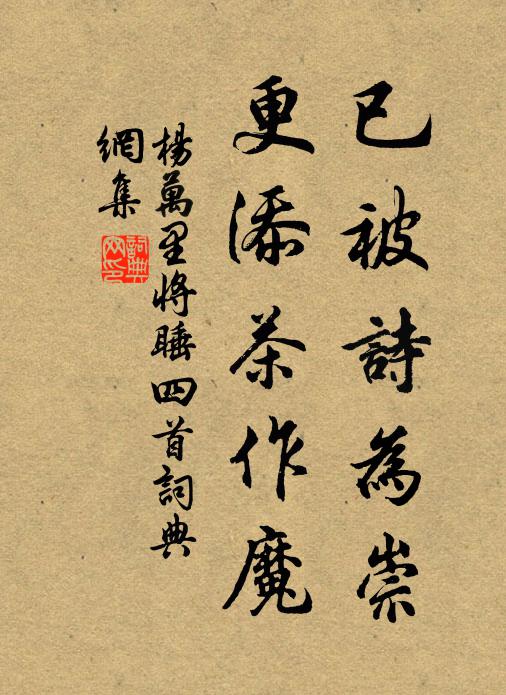 已被詩為祟
更添茶作魔
楊萬里將睡四首詞典
網集
詞典网印